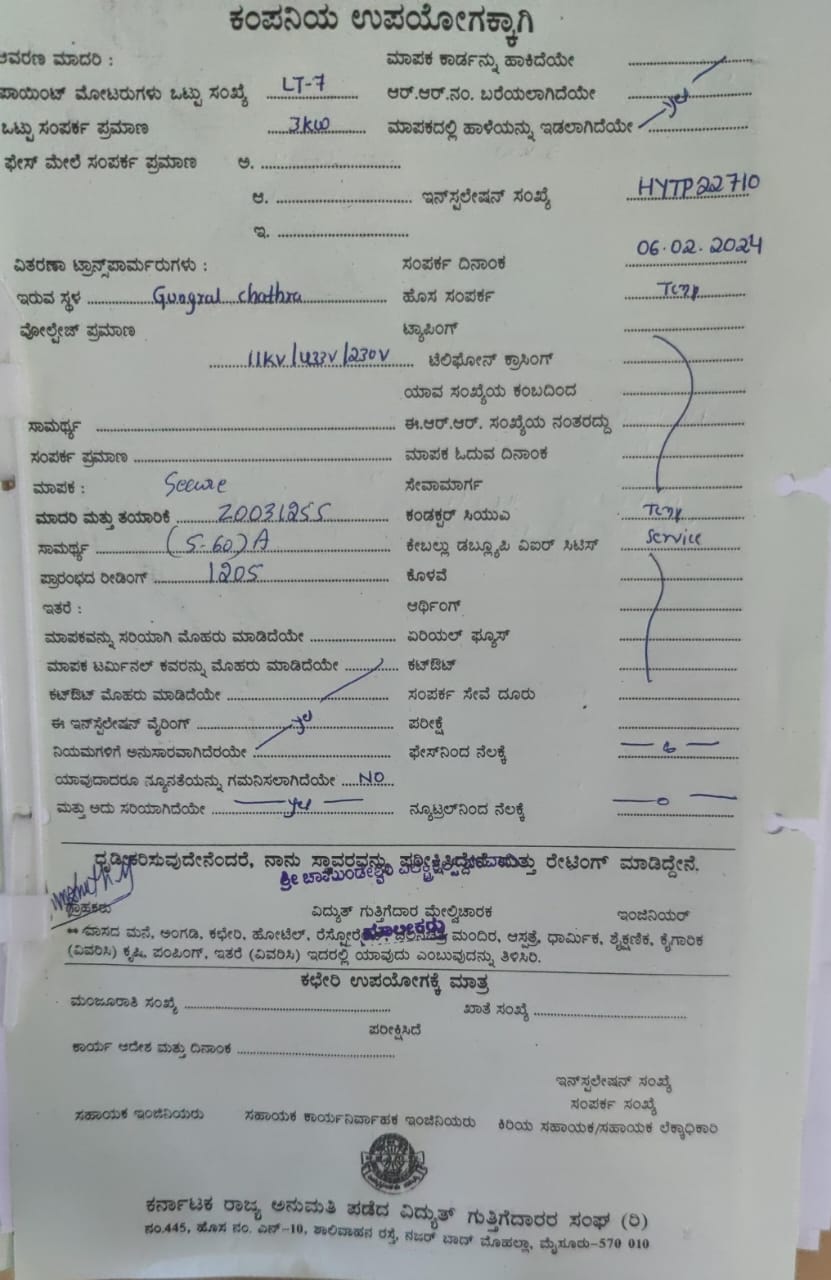 ಕಂಪನಿಯ ಉಪಯೋಗಕ್ಕಾಗಿ
ಆವರಣ ಮಾದರಿ : ಮಾಪಕ ಕಾರ್ಡನ್ನು ಹಾಕಿದೆಯೇ
ಪಾಯಿಂಟ್ ಮೋಟರುಗಳು ಒಟ್ಟು ಸಂಖ್ಯೆ LT-7 ಆರ್.ಆರ್.ನಂ. ಬರೆಯಲಾಗಿದೆಯೇ yes
ಒಟ್ಟು ಸಂಪರ್ಕ ಪ್ರಮಾಣ 3kw ಮಾಪಕದಲ್ಲಿ ಹಾಳೆಯನ್ನು ಇಡಲಾಗಿದೆಯೇ
ಫೇಸ್ ಮೇಲೆ ಸಂಪರ್ಕ ಪ್ರಮಾಣ ಅ.
ಆ. ಇನ್‌ಸ್ಟಲೇಷನ್ ಸಂಖ್ಯೆ HYTP22710
ಇ.
ವಿತರಣಾ ಟ್ರಾನ್ಸ್‌ಪಾರ್ಮರುಗಳು : ಸಂಪರ್ಕ ದಿನಾಂಕ 06.02.2024
ಇರುವ ಸ್ಥಳ Gungral chathra ಹೊಸ ಸಂಪರ್ಕ Temp
ವೋಲ್ಟೇಜ್ ಪ್ರಮಾಣ ಟ್ಯಾಪಿಂಗ್
11KV/433V/230V ಟೆಲಿಫೋನ್ ಕ್ರಾಸಿಂಗ್
ಯಾವ ಸಂಖ್ಯೆಯ ಕಂಬದಿಂದ
ಸಾಮರ್ಥ್ಯ ಈ.ಆರ್.ಆರ್. ಸಂಖ್ಯೆಯ ನಂತರದ್ದು
ಸಂಪರ್ಕ ಪ್ರಮಾಣ ಮಾಪಕ ಓದುವ ದಿನಾಂಕ
ಮಾಪಕ : Secure ಸೇವಾಮಾರ್ಗ
ಮಾದರಿ ಮತ್ತು ತಯಾರಿಕೆ Z0031255 ಕಂಡಕ್ಟರ್ ಸಿಯುಎ Temp
ಸಾಮರ್ಥ್ಯ (5-60)A ಕೇಬಲ್ಲು ಡಬ್ಲ್ಯೂಪಿ ವಿಐರ್ ಸಿಟಿಸ್ Service
ಪ್ರಾರಂಭದ ರೀಡಿಂಗ್ 1205 ಕೊಳವೆ
ಇತರೆ : ಆರ್ಥಿಂಗ್
ಮಾಪಕವನ್ನು ಸರಿಯಾಗಿ ಮೊಹರು ಮಾಡಿದೆಯೇ ಏರಿಯಲ್ ಫ್ಯೂಸ್
ಮಾಪಕ ಟರ್ಮಿನಲ್ ಕವರನ್ನು ಮೊಹರು ಮಾಡಿದೆಯೇ ಕಟ್‌ಔಟ್
ಕಟ್‌ಔಟ್ ಮೊಹರು ಮಾಡಿದೆಯೇ ಸಂಪರ್ಕ ಸೇವೆ ದೂರು
ಈ ಇನ್‌ಸ್ಟೆಲೇಷನ್ ವೈರಿಂಗ್ yes ಪರೀಕ್ಷೆ
ನಿಯಮಗಳಿಗೆ ಅನುಸಾರವಾಗಿದೆರಯೇ ಫೇಸ್‌ನಿಂದ ನೆಲಕ್ಕೆ — o —
ಯಾವುದಾದರೂ ನ್ಯೂನತೆಯನ್ನು ಗಮನಿಸಲಾಗಿದೆಯೇ NO
ಮತ್ತು ಅದು ಸರಿಯಾಗಿದೆಯೇ — yes — ನ್ಯೂಟ್ರಲ್‌ನಿಂದ ನೆಲಕ್ಕೆ — o —
ಧೃಡೀಕರಿಸುವುದೇನೆಂದರೆ, ನಾನು ಸ್ಥಾವರವನ್ನು ಪರೀಕ್ಷಿಸಿದ್ದೇನೆ ಮತ್ತು ರೇಟಿಂಗ್ ಮಾಡಿದ್ದೇನೆ.
ಶ್ರೀ ಚಾಮುಂಡೇಶ್ವರಿ
ಗ್ರಾಹಕರು ವಿದ್ಯುತ್ ಗುತ್ತಿಗೆದಾರ ಮೇಲ್ವಿಚಾರಕ ಇಂಜಿನಿಯರ್
ಮಾಲೀಕರು
** ವಾಸದ ಮನೆ, ಅಂಗಡಿ, ಕಛೇರಿ, ಹೋಟೆಲ್, ಮಂದಿರ, ಆಸ್ಪತ್ರೆ, ಧಾರ್ಮಿಕ, ಶೈಕ್ಷಣಿಕ, ಕೈಗಾರಿಕ
(ವಿವರಿಸಿ) ಕೃಷಿ, ಪಂಪಿಂಗ್, ಇತರೆ (ವಿವರಿಸಿ) ಇದರಲ್ಲಿ ಯಾವುದು ಎಂಬುವುದನ್ನು ತಿಳಿಸಿರಿ.
ಕಛೇರಿ ಉಪಯೋಗಕ್ಕೆ ಮಾತ್ರ
ಮಂಜೂರಾತಿ ಸಂಖ್ಯೆ ಖಾತೆ ಸಂಖ್ಯೆ
ಪರೀಕ್ಷಿಸಿದೆ
ಕಾರ್ಯ ಆದೇಶ ಮತ್ತು ದಿನಾಂಕ
ಇನ್‌ಸ್ಟಲೇಷನ್ ಸಂಖ್ಯೆ
ಸಂಪರ್ಕ ಸಂಖ್ಯೆ
ಸಹಾಯಕ ಇಂಜಿನಿಯರು ಸಹಾಯಕ ಕಾರ್ಯನಿರ್ವಾಹಕ ಇಂಜಿನಿಯರು ಕಿರಿಯ ಸಹಾಯಕ/ಸಹಾಯಕ ಲೆಕ್ಕಾಧಿಕಾರಿ
ಕರ್ನಾಟಕ ರಾಜ್ಯ ಅನುಮತಿ ಪಡೆದ ವಿದ್ಯುತ್ ಗುತ್ತಿಗೆದಾರರ ಸಂಘ (ರಿ)
ನಂ.445, ಹೊಸ ನಂ. ಎನ್-10, ಶಾಲಿವಾಹನ ರಸ್ತೆ, ನಜರ್ ಬಾದ್ ಮೊಹಲ್ಲಾ, ಮೈಸೂರು-570 010